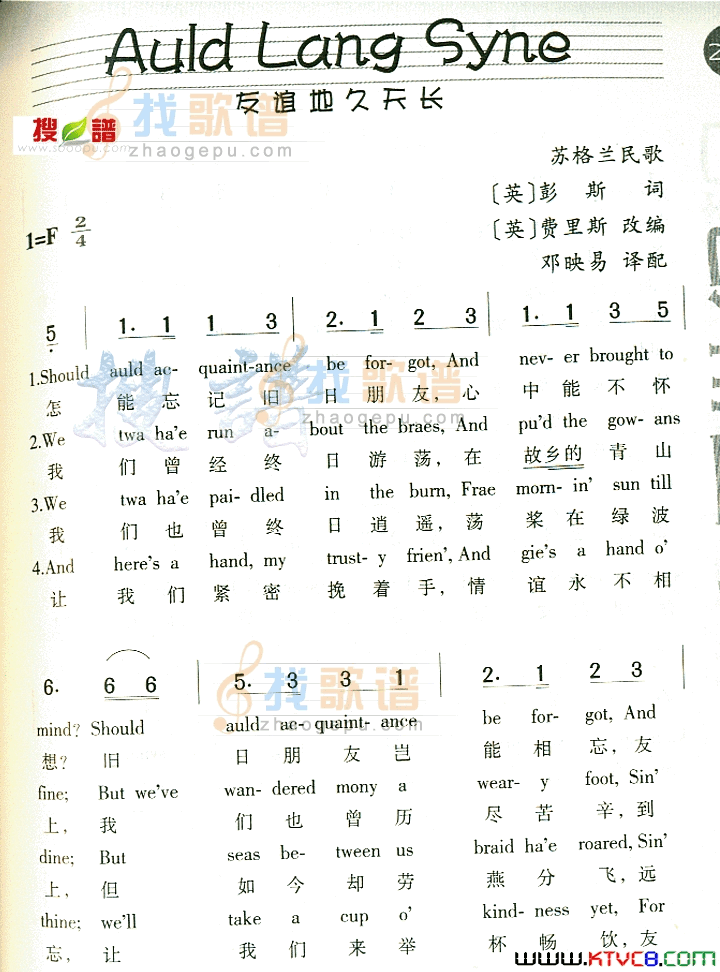 Auld Lang Syne
友谊地久天长
搜谱
www.sooopu.com
找歌谱
zhaogepu.com
苏格兰民歌
〔英〕彭 斯 词
〔英〕费里斯 改编
邓映易 译配
1=F 2/4
5 | 1. 1 1 3 | 2. 1 2 3 | 1. 1 3 5
1.Should auld ac- quaint-ance be for- got, And nev- er brought to
怎 能 忘 记 旧 日 朋 友, 心 中 能 不 怀
2.We twa ha'e run a- bout the braes, And pu'd the gow- ans
我 们 曾 经 终 日 游 荡, 在 故乡的 青 山
3.We twa ha'e pai- dled in the burn, Frae morn- in' sun till
我 们 也 曾 终 日 逍 遥, 荡 桨 在 绿 波
4.And here's a hand, my trust- y frien', And gie's a hand o'
让 我 们 紧 密 挽 着 手, 情 谊 永 不 相
找歌谱
zhaogepu.com
搜谱
找歌谱
zhaogepu.com
6. 6 6 | 5. 3 3 1 | 2. 1 2 3 |
mind? Should auld ac- quaint- ance be for- got, And
想? 旧 日 朋 友 岂 能 相 忘, 友
fine; But we've wan- dered mony a wear- y foot, Sin'
上, 我 们 也 曾 历 尽 苦 辛, 到
dine; But seas be- tween us braid ha'e roared, Sin'
上, 但 如 今 却 劳 燕 分 飞, 远
thine; we'll take a cup o' kind- ness yet, For
忘, 让 我 们 来 举 杯 畅 饮, 友
www.KTVC8.com
2